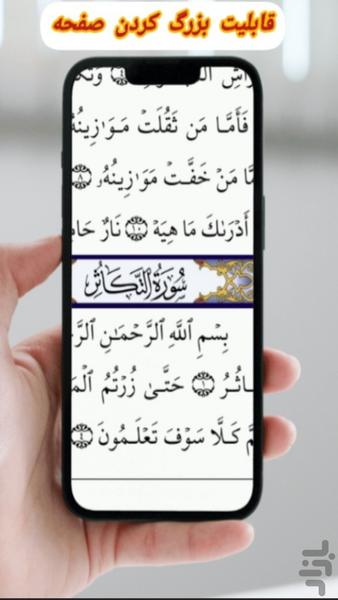 قابلیت بزرگ کردن صفحه
فَأَمَّا مَن ثَقُلَتْ مَوَٰزِينُهُ
مَنْ خَفَّتْ مَوَٰزِينُهُۥ ۝٨
أَدْرَىٰكَ مَا هِيَهْ ۝١٠ نَارٌ
سُورَةُ التَّكَاثُرِ
بِسْمِ اللَّهِ الرَّحْمَٰنِ
۝١ حَتَّىٰ زُرْتُمُ
كَلَّا سَوْفَ تَعْلَمُونَ ۝٤
بازار